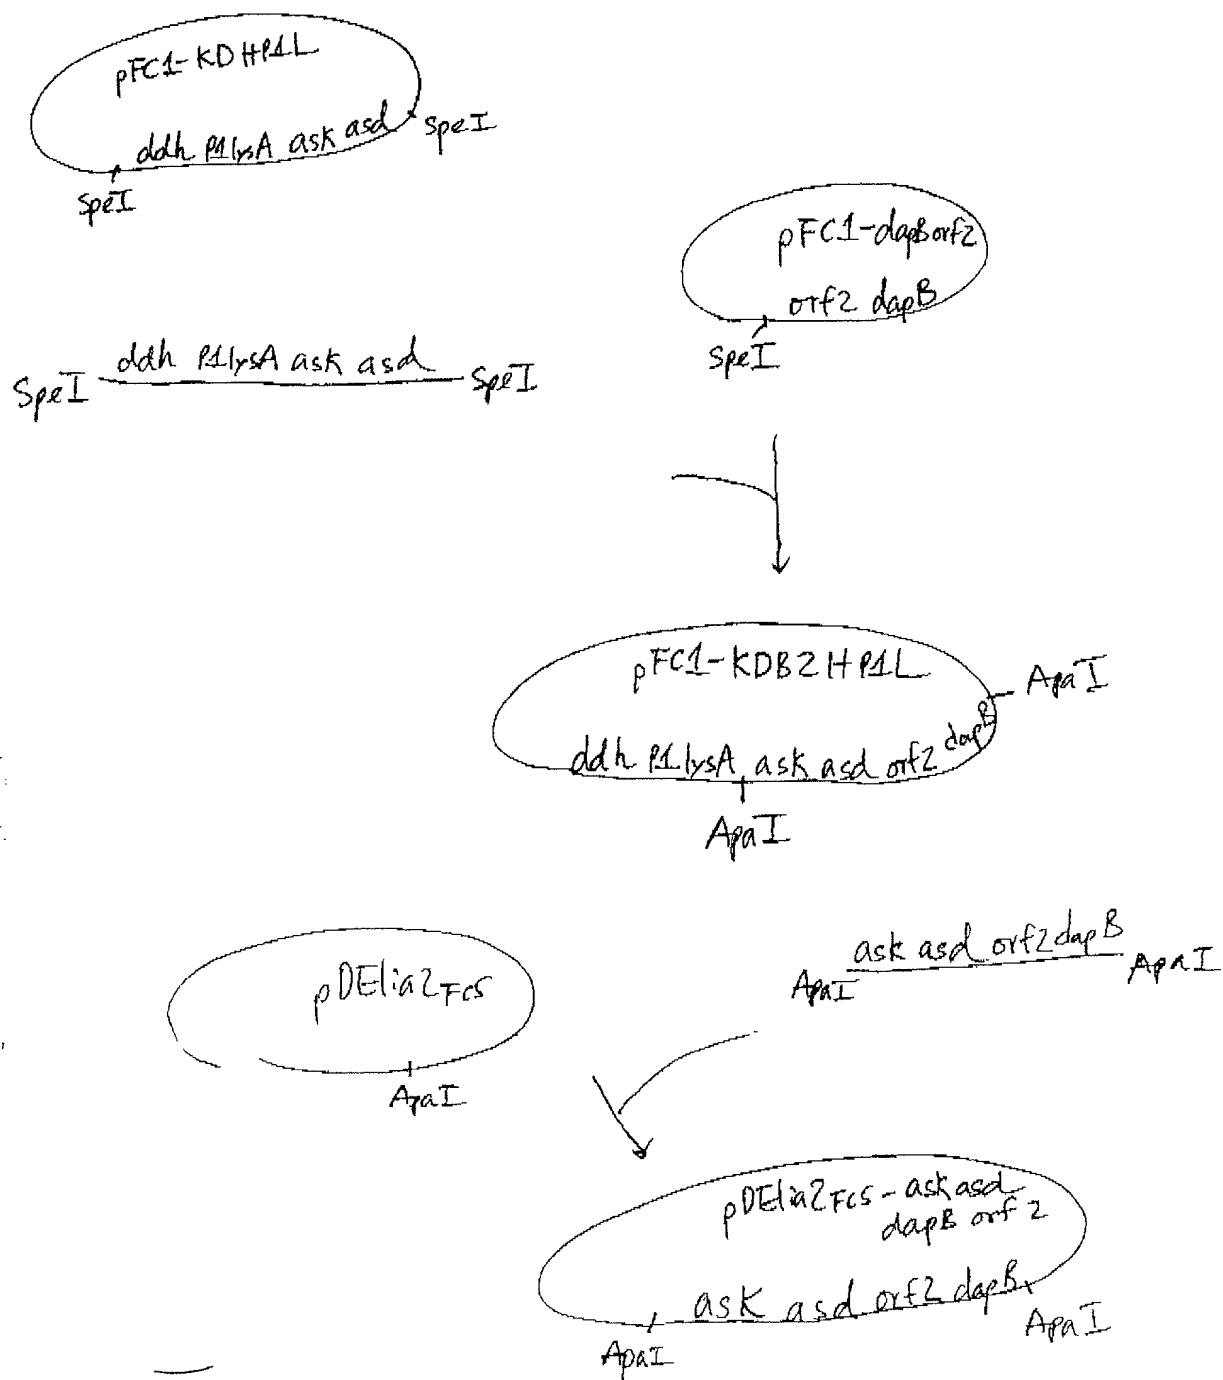 pFC1-KDHP1L
ddh P1lysA ask asd
SpeI
SpeI
pFC1-dapBorf2
orf2 dapB
SpeI
ddh P1lysA ask asd
SpeI
SpeI
pFC1-KDB2HP1L
ApaI
ddh P1lysA ask asd orf2 dapB
ApaI
ask asd orf2dapB
ApaI
ApaI
pDElia2FC5
ApaI
pDElia2FC5-ask asd
dapB orf2
ask asd orf2 dapB
ApaI
ApaI